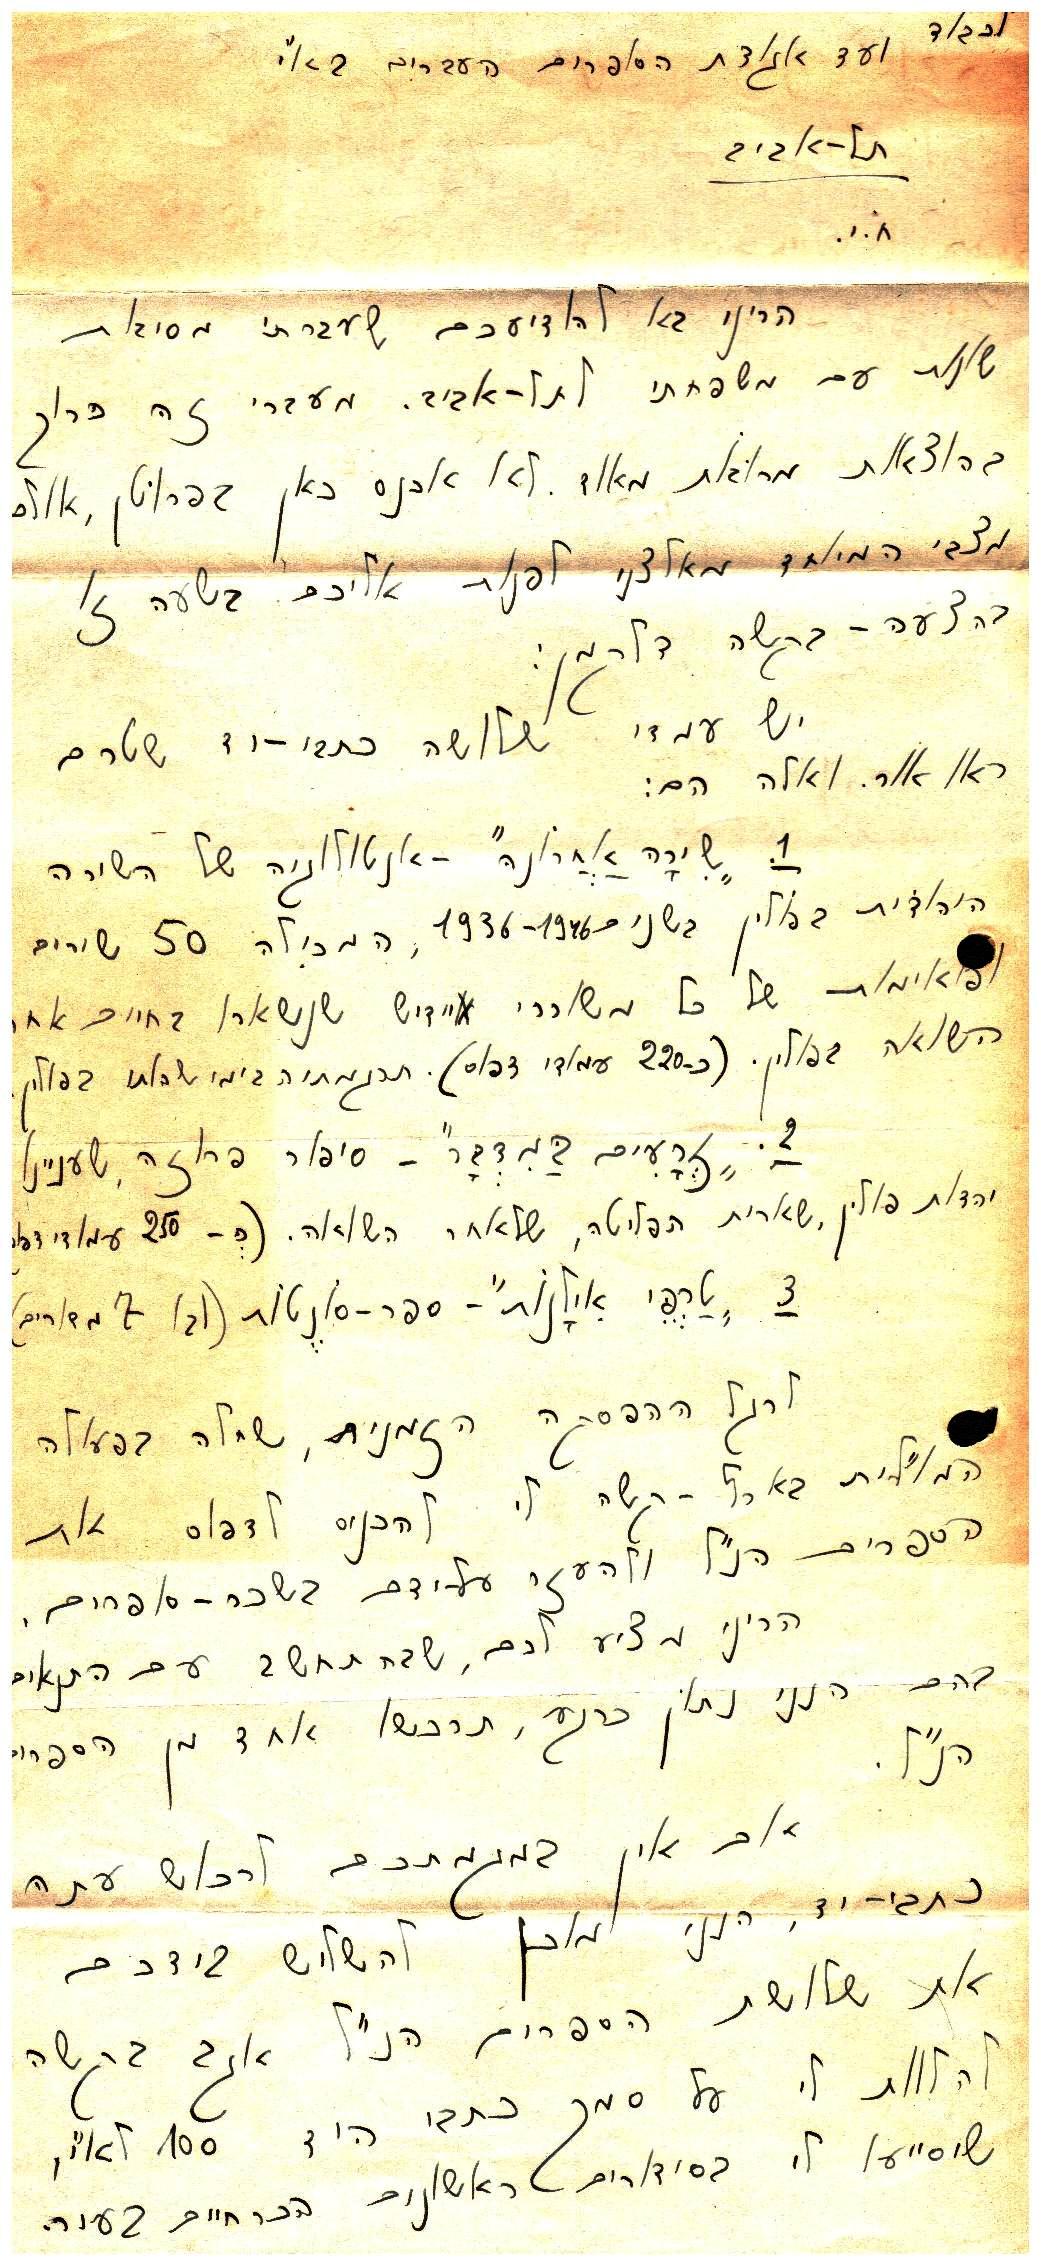 לכבוד
ועד אגודת הסופרים העברים בא"י
תל-אביב
א.נ.
הריני בא להודיעכם שעברתי מסיבות
שונות עם משפחתי לתל-אביב. מעברי זה כרוך
בהוצאות מרובות מאוד. לא אכנס כאן בפרוטן, אולם
מצבי המיוחד מאלצני לפנות אליכם בשעה זו
בהצעה - בקשה דלקמן:
יש עמדי שלושה כתבי-יד שטרם
ראו אור. ואלה הם:
1. „שִׁירָה אַחֲרוֹנה" - אנטולוגיה של השירה
היהודית בפולין בשנים 1936-1946, המכילה 50 שירים
ופואימות של כל משוררי אידיש שנשארו בחיים אחר
השואה בפולין. (כ-220 עמודי דפוס). תרגמתיה בימי שבתי בפולין.
2. „זְרָעִים בַּמִדְבָּר" - סיפור פרוזה, שעניינו
יהדות פולין, שארית הפליטה, שלאחר השואה. (כ- 250 עמודי דפוס)
3 „טַרְפֵי אִילָנוֹת" - ספר-סוֹנֶטוֹת (ובו 7 מדורים)
לרגל ההפסקה הזמנית, שחלה בפעולה
המו"לית בארץ - קשה לי להכניס לדפוס את
הספרים הנ"ל ולהעזר על-ידם בשכר-סופרים.
הריני מציע לכם, שבהתחשב עם התנאים
בהם הנני נתון כרגע, תרכשו אחד מן הספרים
הנ"ל.
אם אין במגמתכם לרכוש עתה
כתבי-יד, הנני מוכן להשליש בידכם
את שלושת הספרים הנ"ל אגב בקשה
להלוות לי על סמך כתבי היד 100 לא"י,
שיסייעו לי בסידורים ראשונים בכרחיים בעיר.